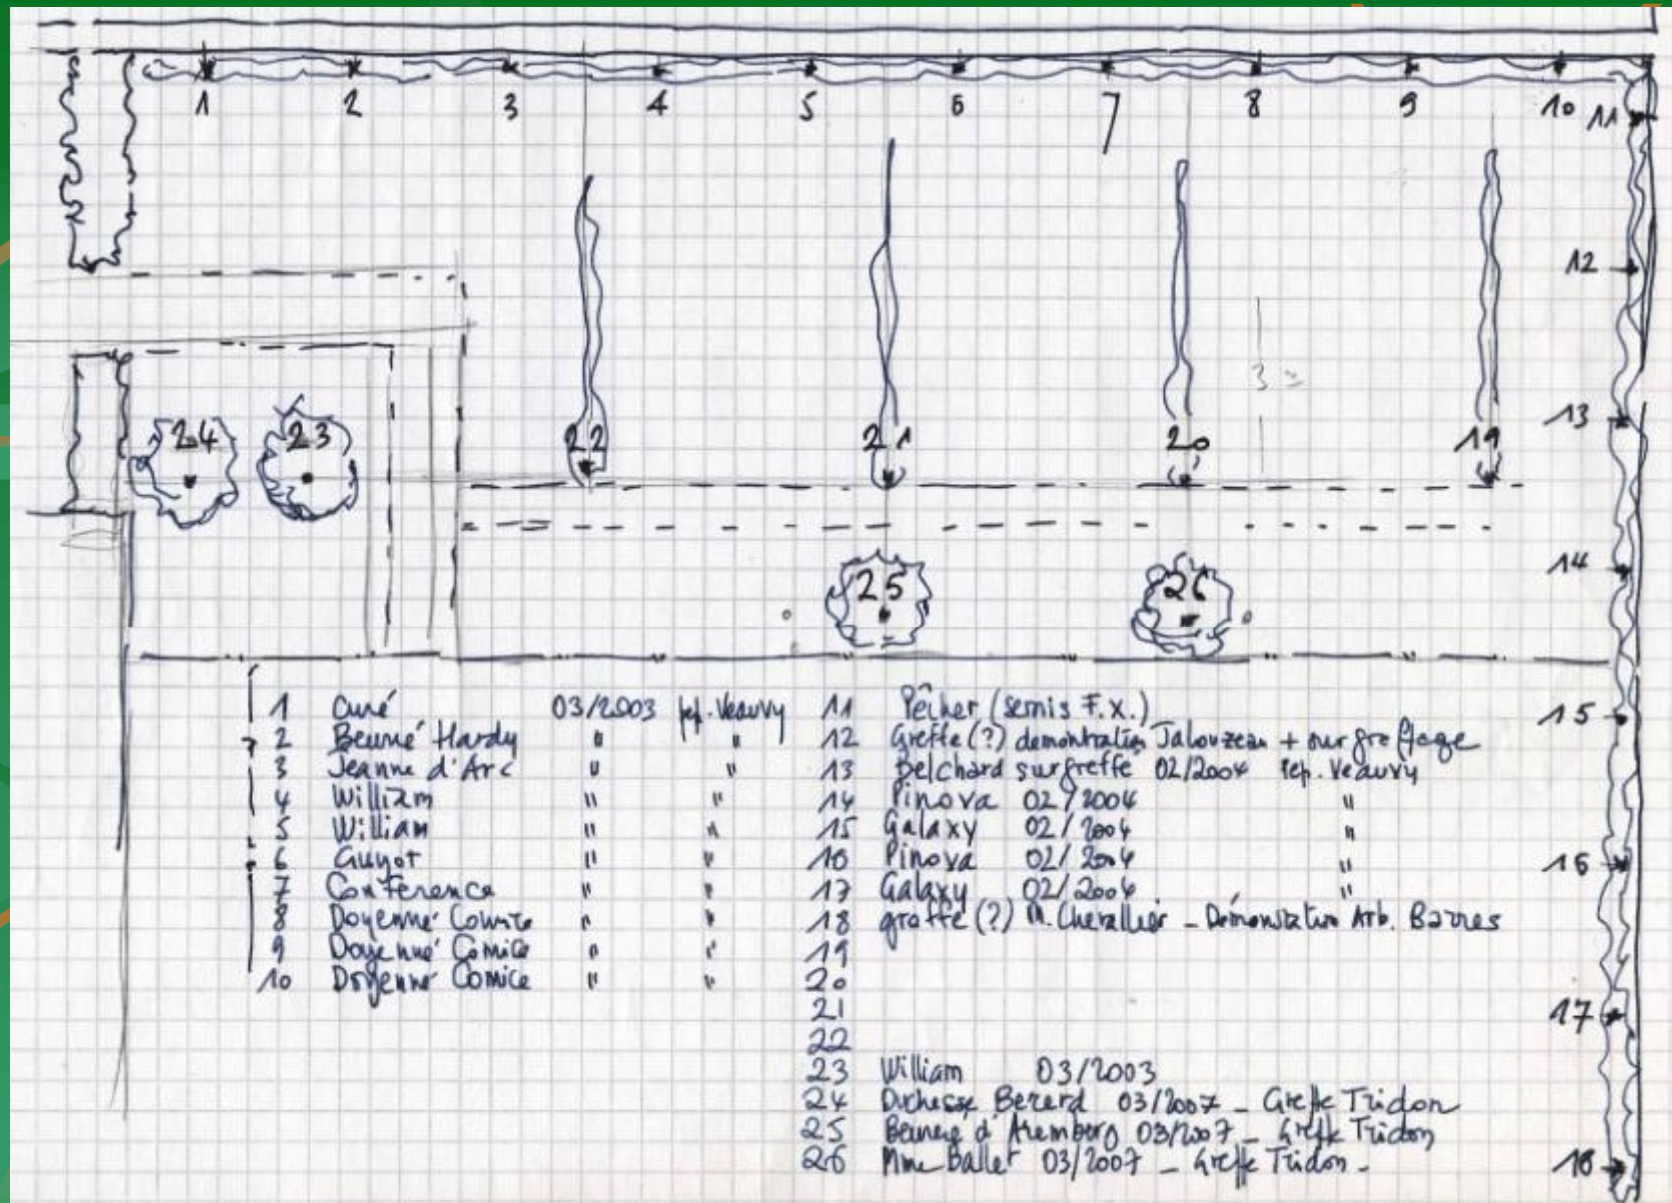 1 2 3 4 5 6 7 8 9 10 11
12
3
13
24 23 22 21 20 19
14
25 26
15
1 Curé 03/2003 pep. Veauvy
2 Beurré Hardy " "
3 Jeanne d'Arc " "
4 William " "
5 William " "
6 Guyot " "
7 Conference " "
8 Doyenné Comice " "
9 Doyenné Comice " "
10 Doyenné Comice " "
11 Pêcher (semis F.X.)
12 Greffe (?) demontration Jalouzeau + surgreffage
13 Belchard surgreffé 02/2004 pep. Veauvy
14 Pinova 02/2004 "
15 Galaxy 02/2004 "
16 Pinova 02/2004 "
17 Galaxy 02/2004 "
18 greffe (?) M. Chevallier - Démonstration Arb. Barres
19
20
21
22
23 William 03/2003
24 Duchesse Bererd 03/2007 - Greffe Tridon
25 Beurré d'Aremberg 03/2007 - Greffe Tridon
26 Mme Ballet 03/2007 - Greffe Tridon -
16
17
18